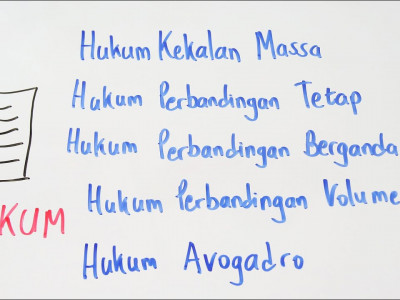 Hukum Kekalan Massa
Hukum Perbandingan Tetap
Hukum Perbandingan Berganda
Hukum Perbandingan Volume
KUM
Hukum Avogadro